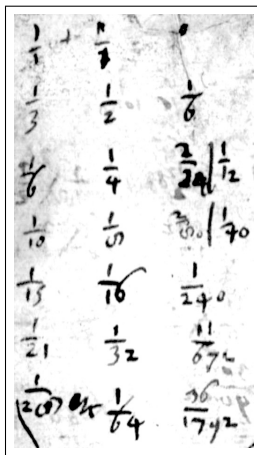 1/1 1/1
1/3 1/2 1/6
1/6 1/4 2/24 | 1/12
1/10 1/8 2/80 | 1/40
1/15 1/16 1/240
1/21 1/32 11/672
1/28 1/64 36/1792